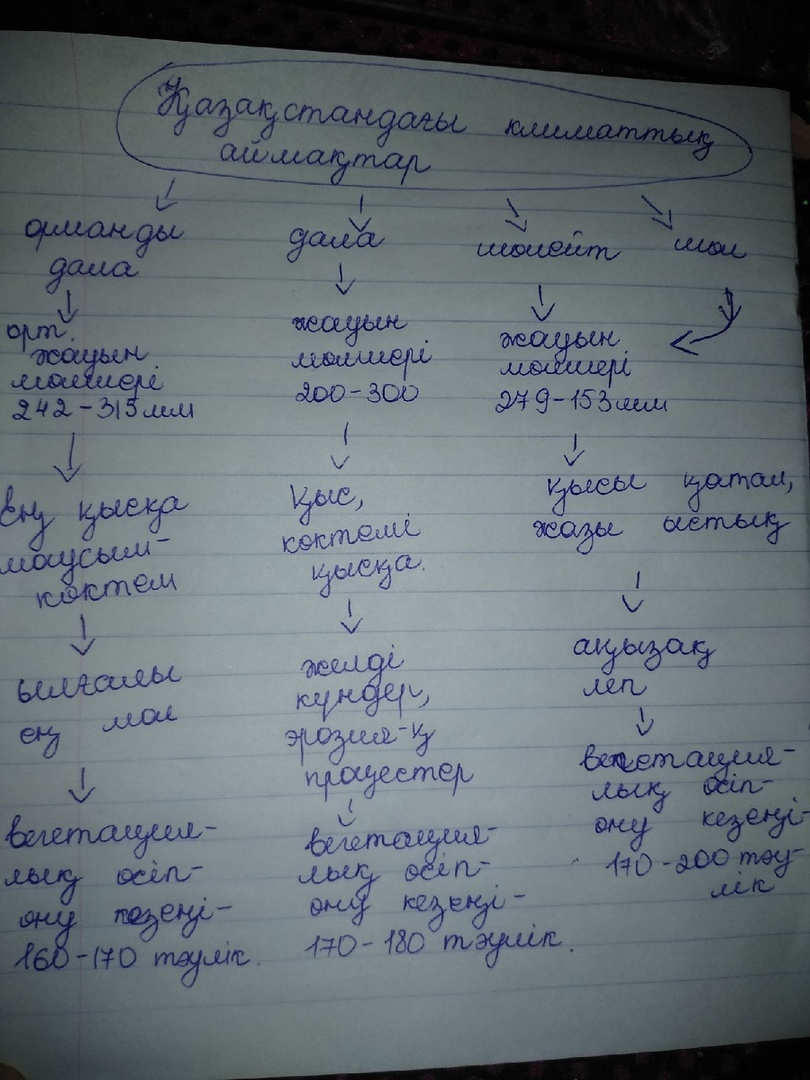 Қазақстандағы климаттық
аймақтар
орманды
дала
орт.
жауын
мөлшері
242-315мм
Ең қысқа
маусым-
көктем
ылғалы
ең мол
вегетация-
лық өсіп-
өну кезеңі-
160-170 тәулік.
дала
жауын
мөлшері
200-300
Қыс,
көктемі
қысқа.
желді
күндер,
эрозия-қ
процестер
вегетация-
лық өсіп-
өну кезеңі-
170-180 тәулік.
шөлейт
шөл
жауын
мөлшері
279-153мм
қысы қатал,
жазы ыстық
аңызақ
леп
вегетация-
лық өсіп-
өну кезеңі-
170-200 тәу-
лік